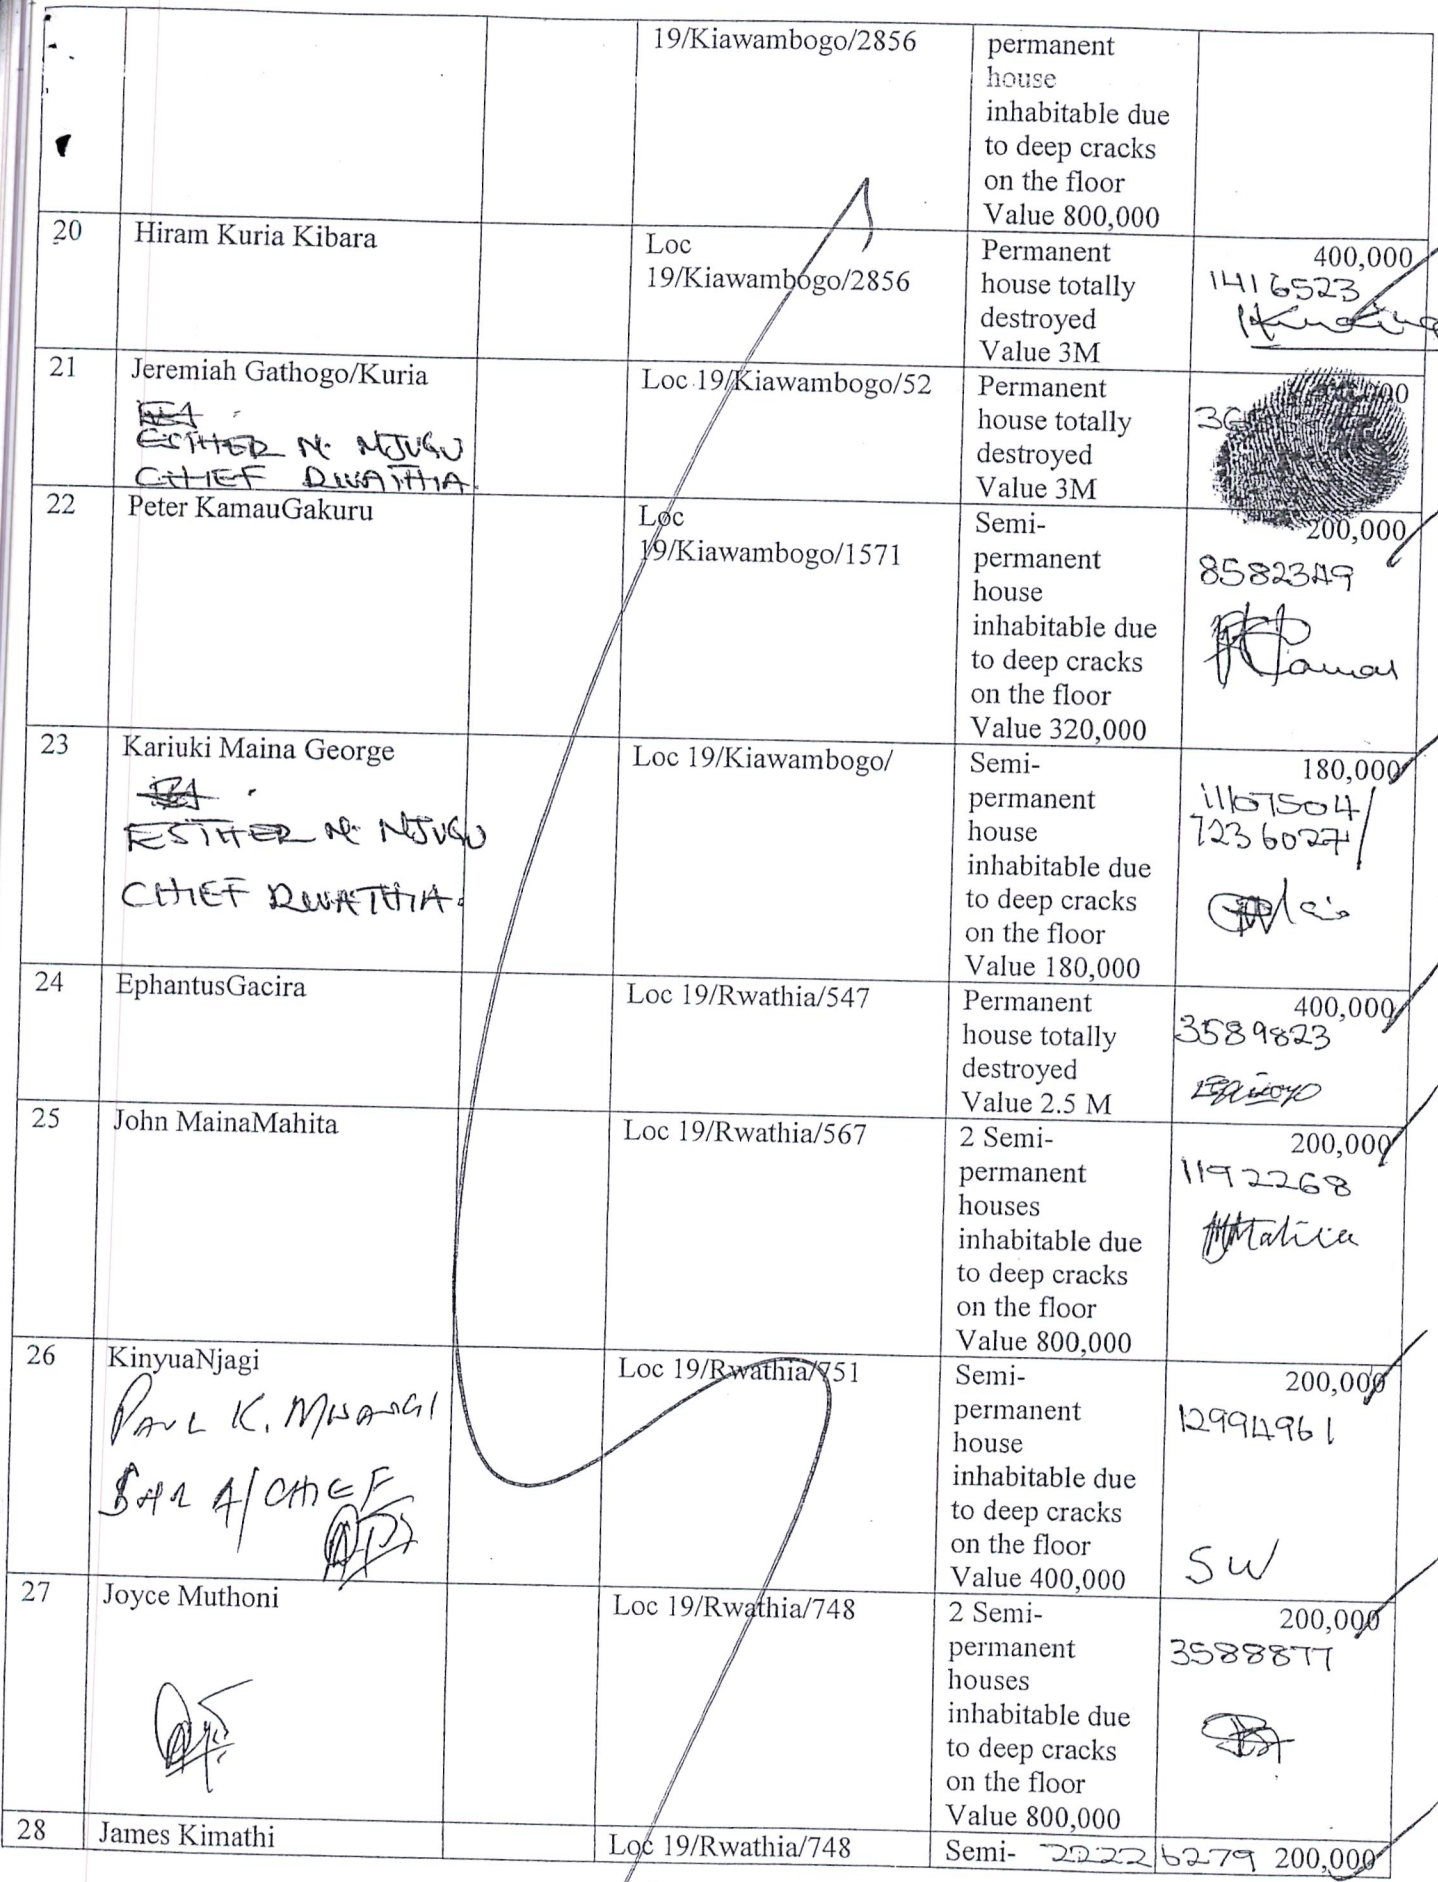 19/Kiawambogo/2856
permanent
house
inhabitable due
to deep cracks
on the floor
Value 800,000
20
Hiram Kuria Kibara
Loc
19/Kiawambogo/2856
Permanent
house totally
destroyed
Value 3M
400,000
1416523
21
Jeremiah Gathogo/Kuria
ESTHER N. NJUGU
CHIEF RWATHIA.
Loc 19/Kiawambogo/52
Permanent
house totally
destroyed
Value 3M
22
Peter KamauGakuru
Loc
19/Kiawambogo/1571
Semi-
permanent
house
inhabitable due
to deep cracks
on the floor
Value 320,000
200,000
8582349
23
Kariuki Maina George
ESTHER N. NJUGU
CHIEF RWATHIA.
Loc 19/Kiawambogo/
Semi-
permanent
house
inhabitable due
to deep cracks
on the floor
Value 180,000
180,000
11107504/
7236027/
24
EphantusGacira
Loc 19/Rwathia/547
Permanent
house totally
destroyed
Value 2.5 M
400,000
3589823
25
John MainaMahita
Loc 19/Rwathia/567
2 Semi-
permanent
houses
inhabitable due
to deep cracks
on the floor
Value 800,000
200,000
1192268
26
KinyuaNjagi
PAUL K. MWANGI
A/CHIEF
Loc 19/Rwathia/751
Semi-
permanent
house
inhabitable due
to deep cracks
on the floor
Value 400,000
200,000
12994961
SW
27
Joyce Muthoni
Loc 19/Rwathia/748
2 Semi-
permanent
houses
inhabitable due
to deep cracks
on the floor
Value 800,000
200,000
3588877
28
James Kimathi
Loc 19/Rwathia/748
Semi-
22226279
200,000